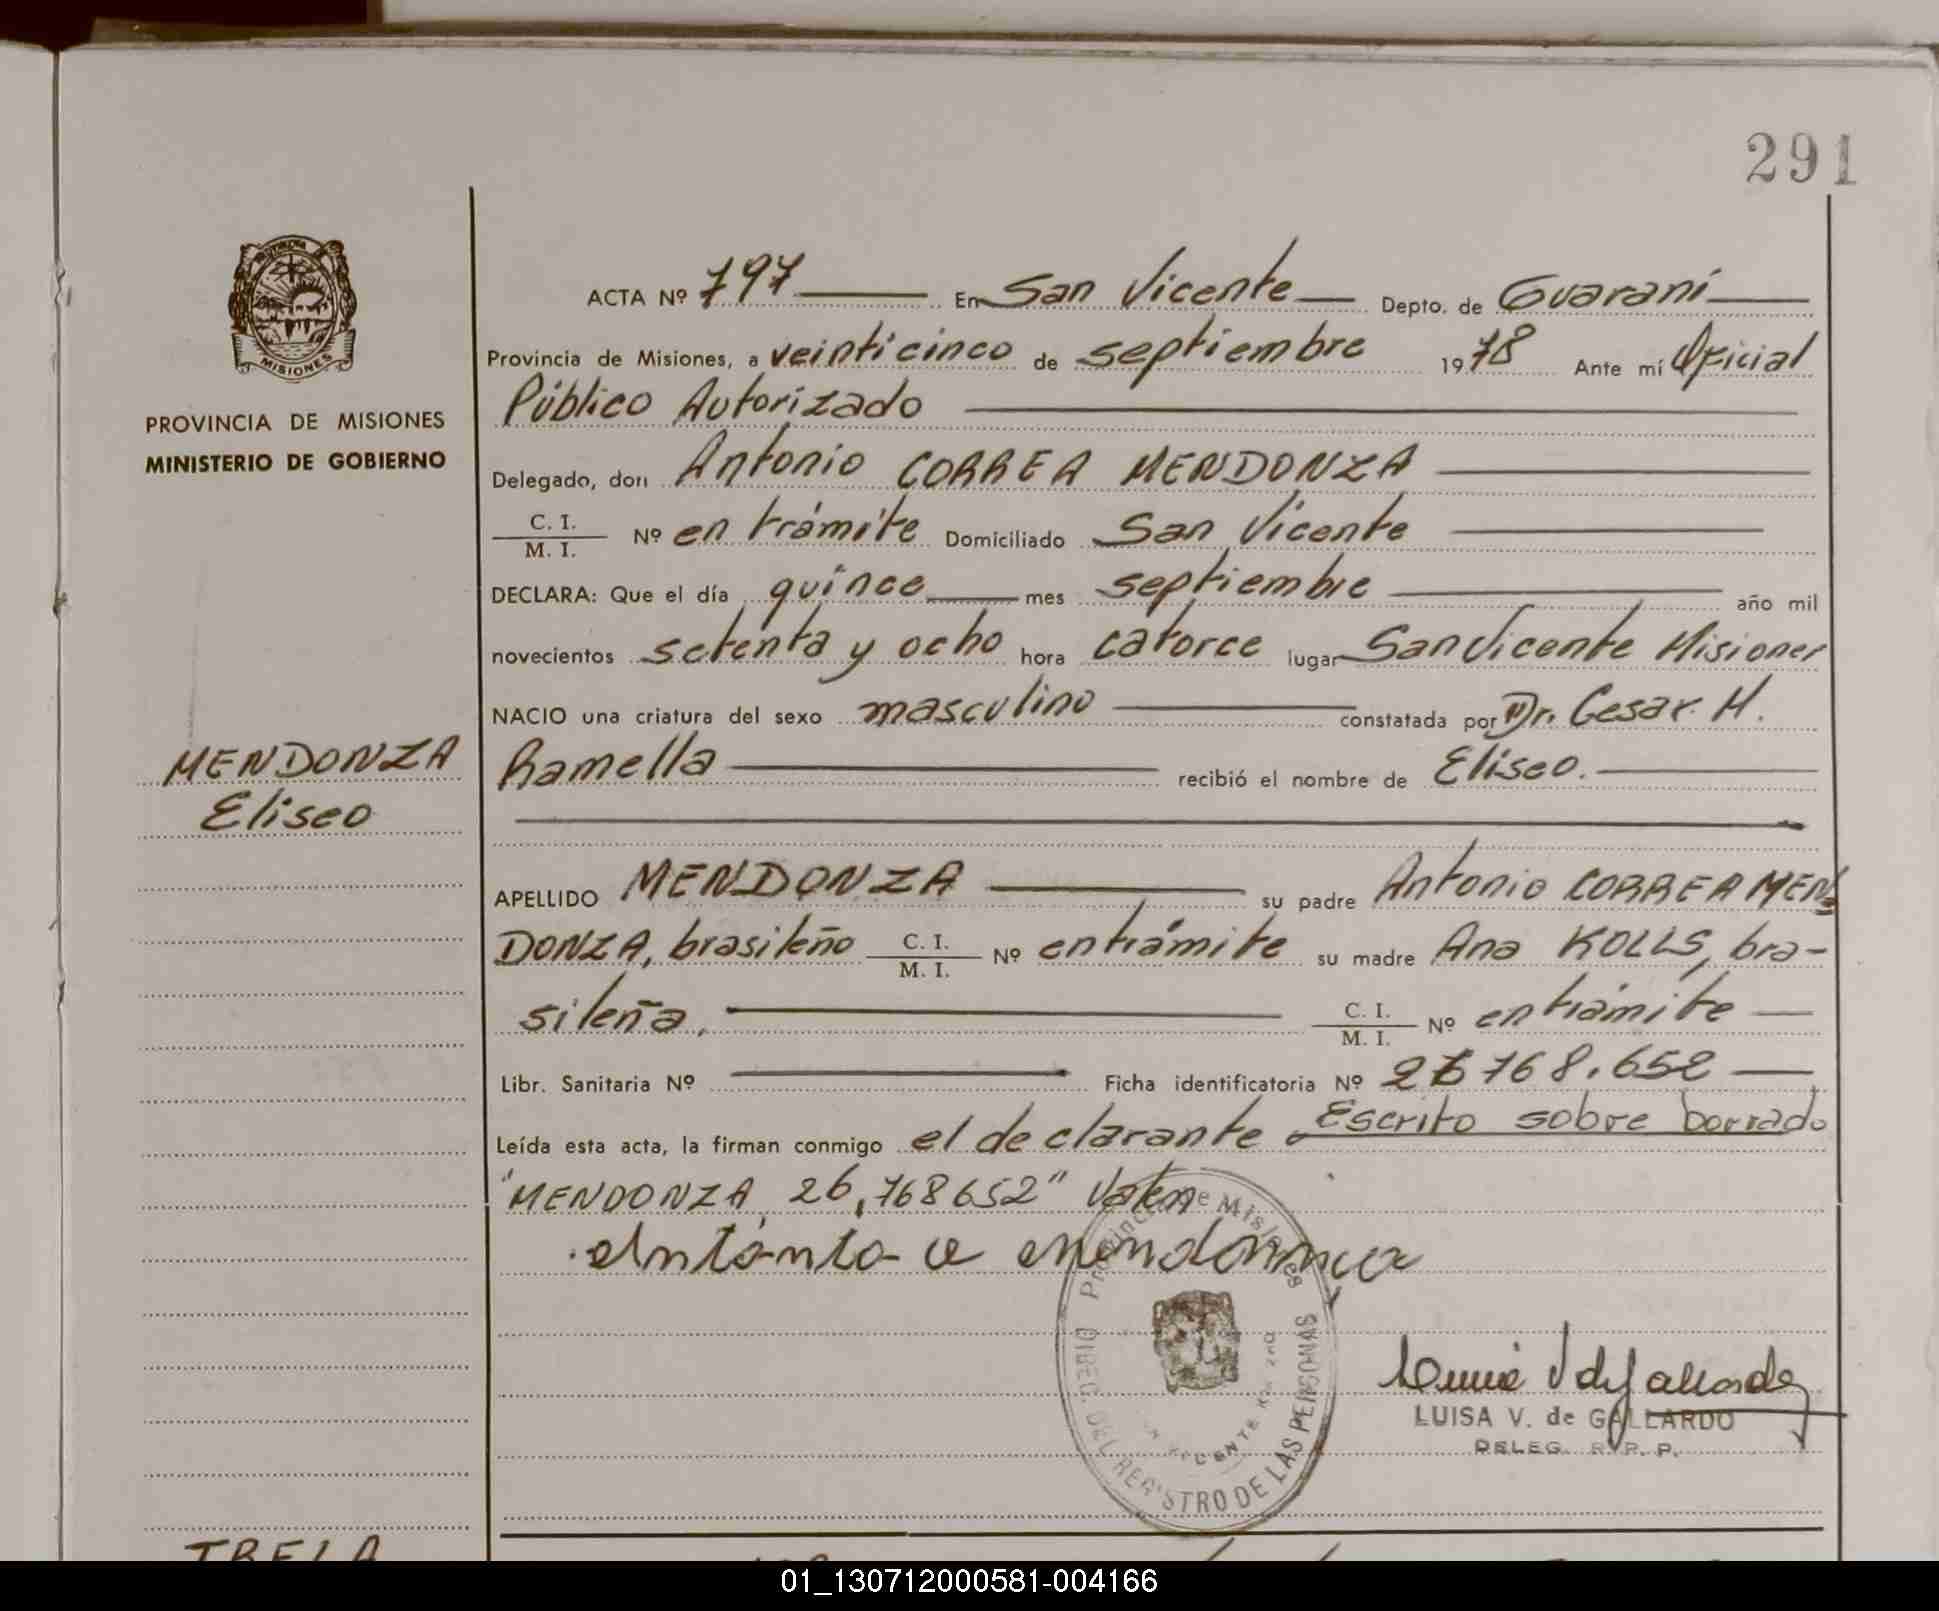 291
ACTA Nº 797 En San Vicente Depto. de Guaraní
Provincia de Misiones, a veinticinco de septiembre 1978 Ante mí Oficial
Público Autorizado
PROVINCIA DE MISIONES
MINISTERIO DE GOBIERNO
MISIONES
Delegado, don Antonio CORREA MENDONZA
C. I.
M. I. Nº en trámite Domiciliado San Vicente
DECLARA: Que el día quince mes septiembre año mil
novecientos setenta y ocho hora catorce lugar San Vicente Misiones
NACIO una criatura del sexo masculino constatada por Dr. Cesar H.
Ramella recibió el nombre de Eliseo.
MENDONZA
Eliseo
APELLIDO MENDONZA su padre Antonio CORREA MEN=
DONZA, brasileño C. I. M. I. Nº en trámite su madre Ana KOLLS, bra-
sileña, C. I. M. I. Nº en trámite
Libr. Sanitaria Nº Ficha identificatoria Nº 26768.652
Leída esta acta, la firman conmigo el declarante Escrito sobre borrado
"MENDONZA, 26,768652" Valen
Provincia de Misiones
DIREC. DEL REGISTRO DE LAS PERSONAS
LUISA V. de GALLARDO
DELEG. R. P. P.
TRELA
01_130712000581-004166